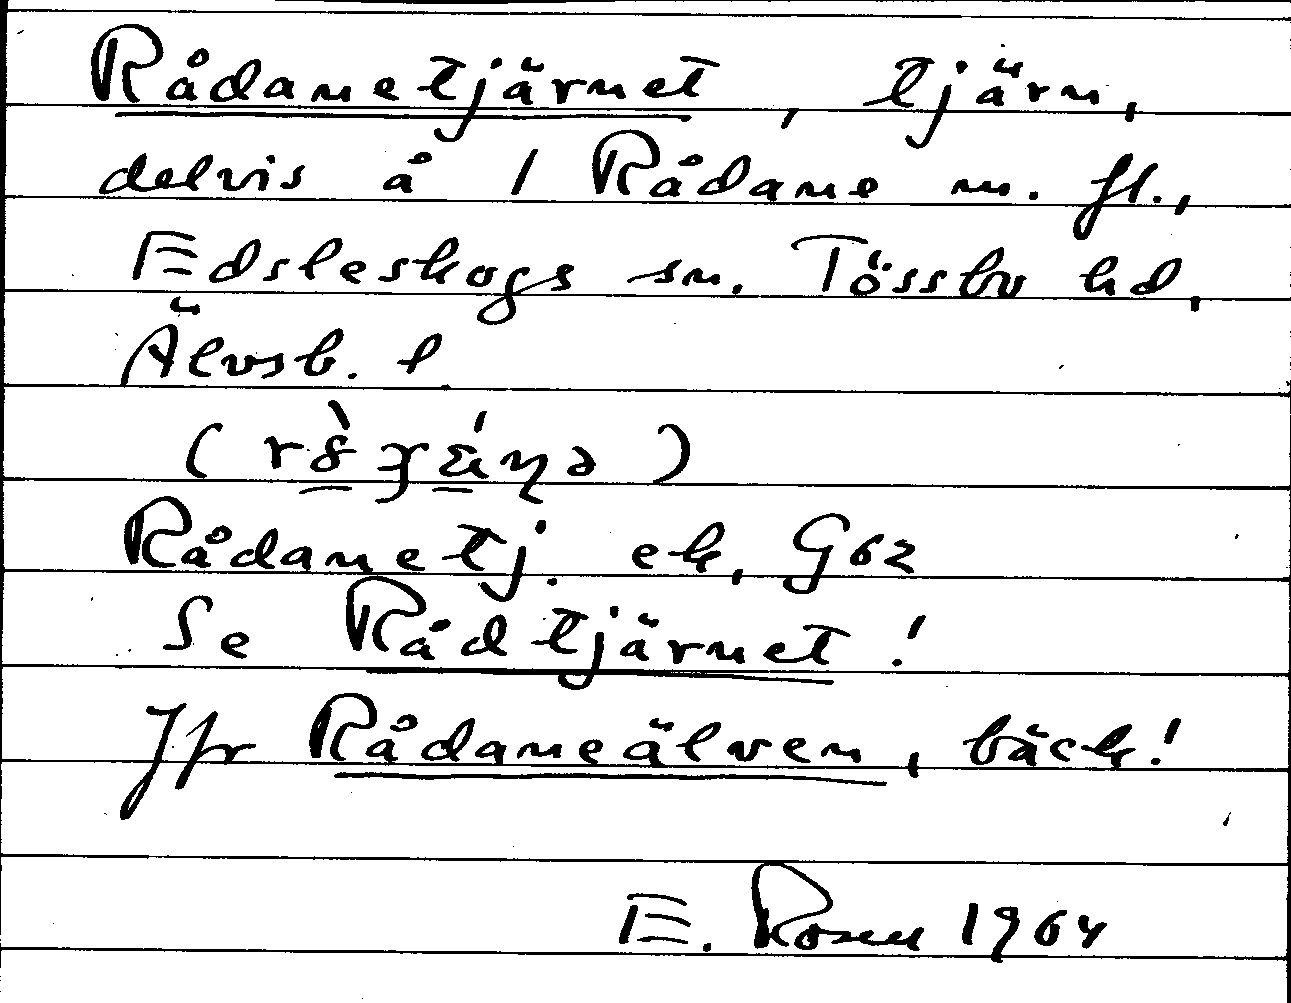 Rådanetjärnet, tjärn,
delvis å 1 Rådane m. fl.,
Edsleskogs sn. Tössbo hd,
Älvsb. l.
Rådanetj. ek, G62
Se Rådtjärnet!
Jfr Rådaneälven, bäck!
E. Rosell 1964